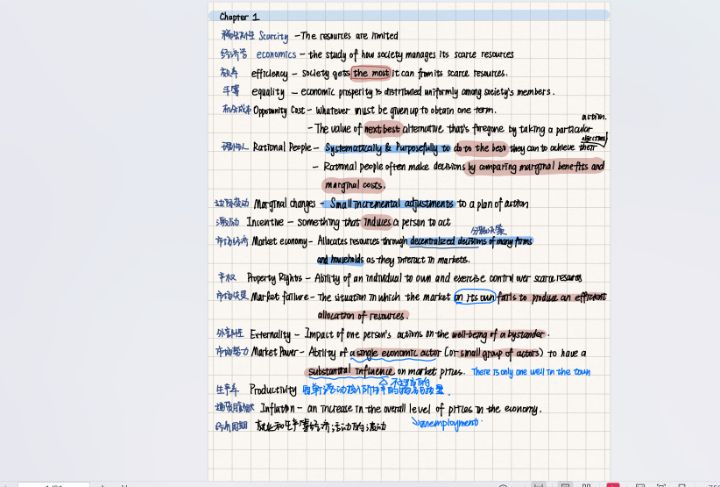 Chapter 1
稀缺性 Scarcity - The resources are limited
经济学 economics - the study of how society manages its scarce resources
效率 efficiency - society gets the most it can from its scarce resources.
平等 equality - economic prosperity is distributed uniformly among society's members.
机会成本 Opportunity Cost - Whatever must be given up to obtain one term.
action.
- The value of next best alternative that's foregone by taking a particular
理性人 Rational People - Systematically & Purposefully to do the best they can to achieve their
- Rational people often make decisions by comparing marginal benefits and
marginal costs.
边际变动 Marginal changes - Small incremental adjustments to a plan of action
激励 Incentive - something that induces a person to act
分散决策
市场经济 Market economy - Allocates resources through decentralized decisions of many firms
and households as they interact in markets.
产权 Property Rights - Ability of an individual to own and exercise control over scarce resources
市场失灵 Market failure - The situation in which the market on its own fails to produce an efficient
allocation of resources.
外部性 Externality - Impact of one person's actions on the well-being of a bystander.
市场势力 Market Power - Ability of a single economic actor (or small group of actors) to have a
substantial influence on market prices. There is only one well in the town
生产率 Productivity
通货膨胀 Inflation - an increase in the overall level of prices in the economy.
unemployment.